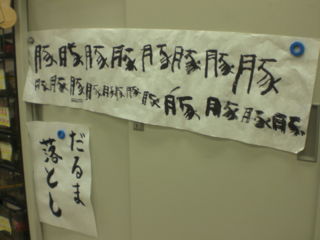 豚豚豚豚豚豚豚豚
豚豚豚豚豚豚豚豚豚豚豚豚
だるま
落とし